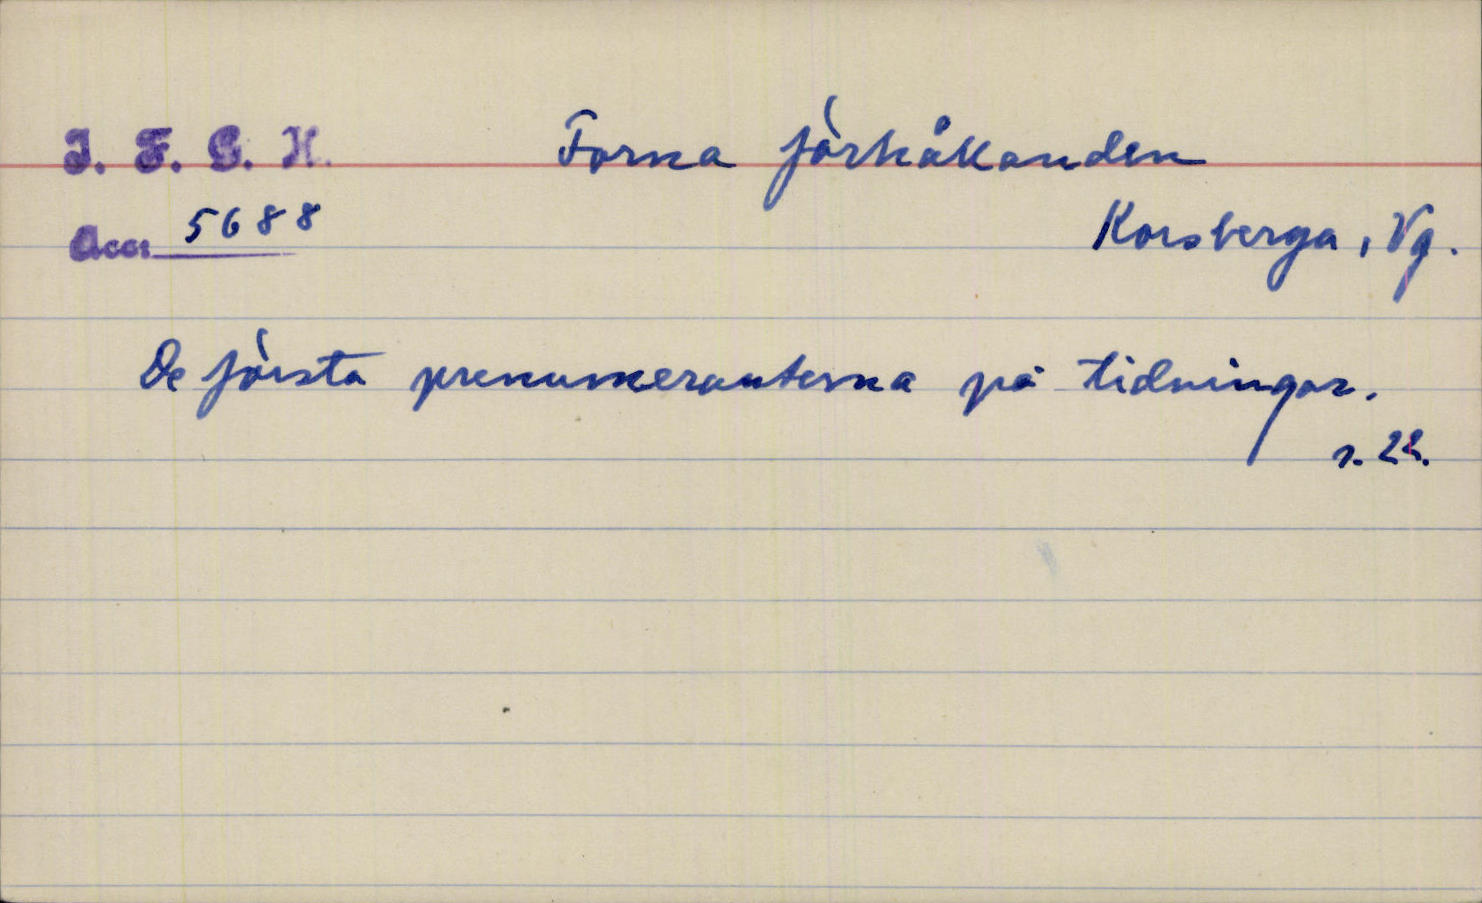 I. F. G. H. Forna förhållanden
Acc. 5688
Korsberga, Vg.
De första prenumeranterna på tidningar.
s. 22.